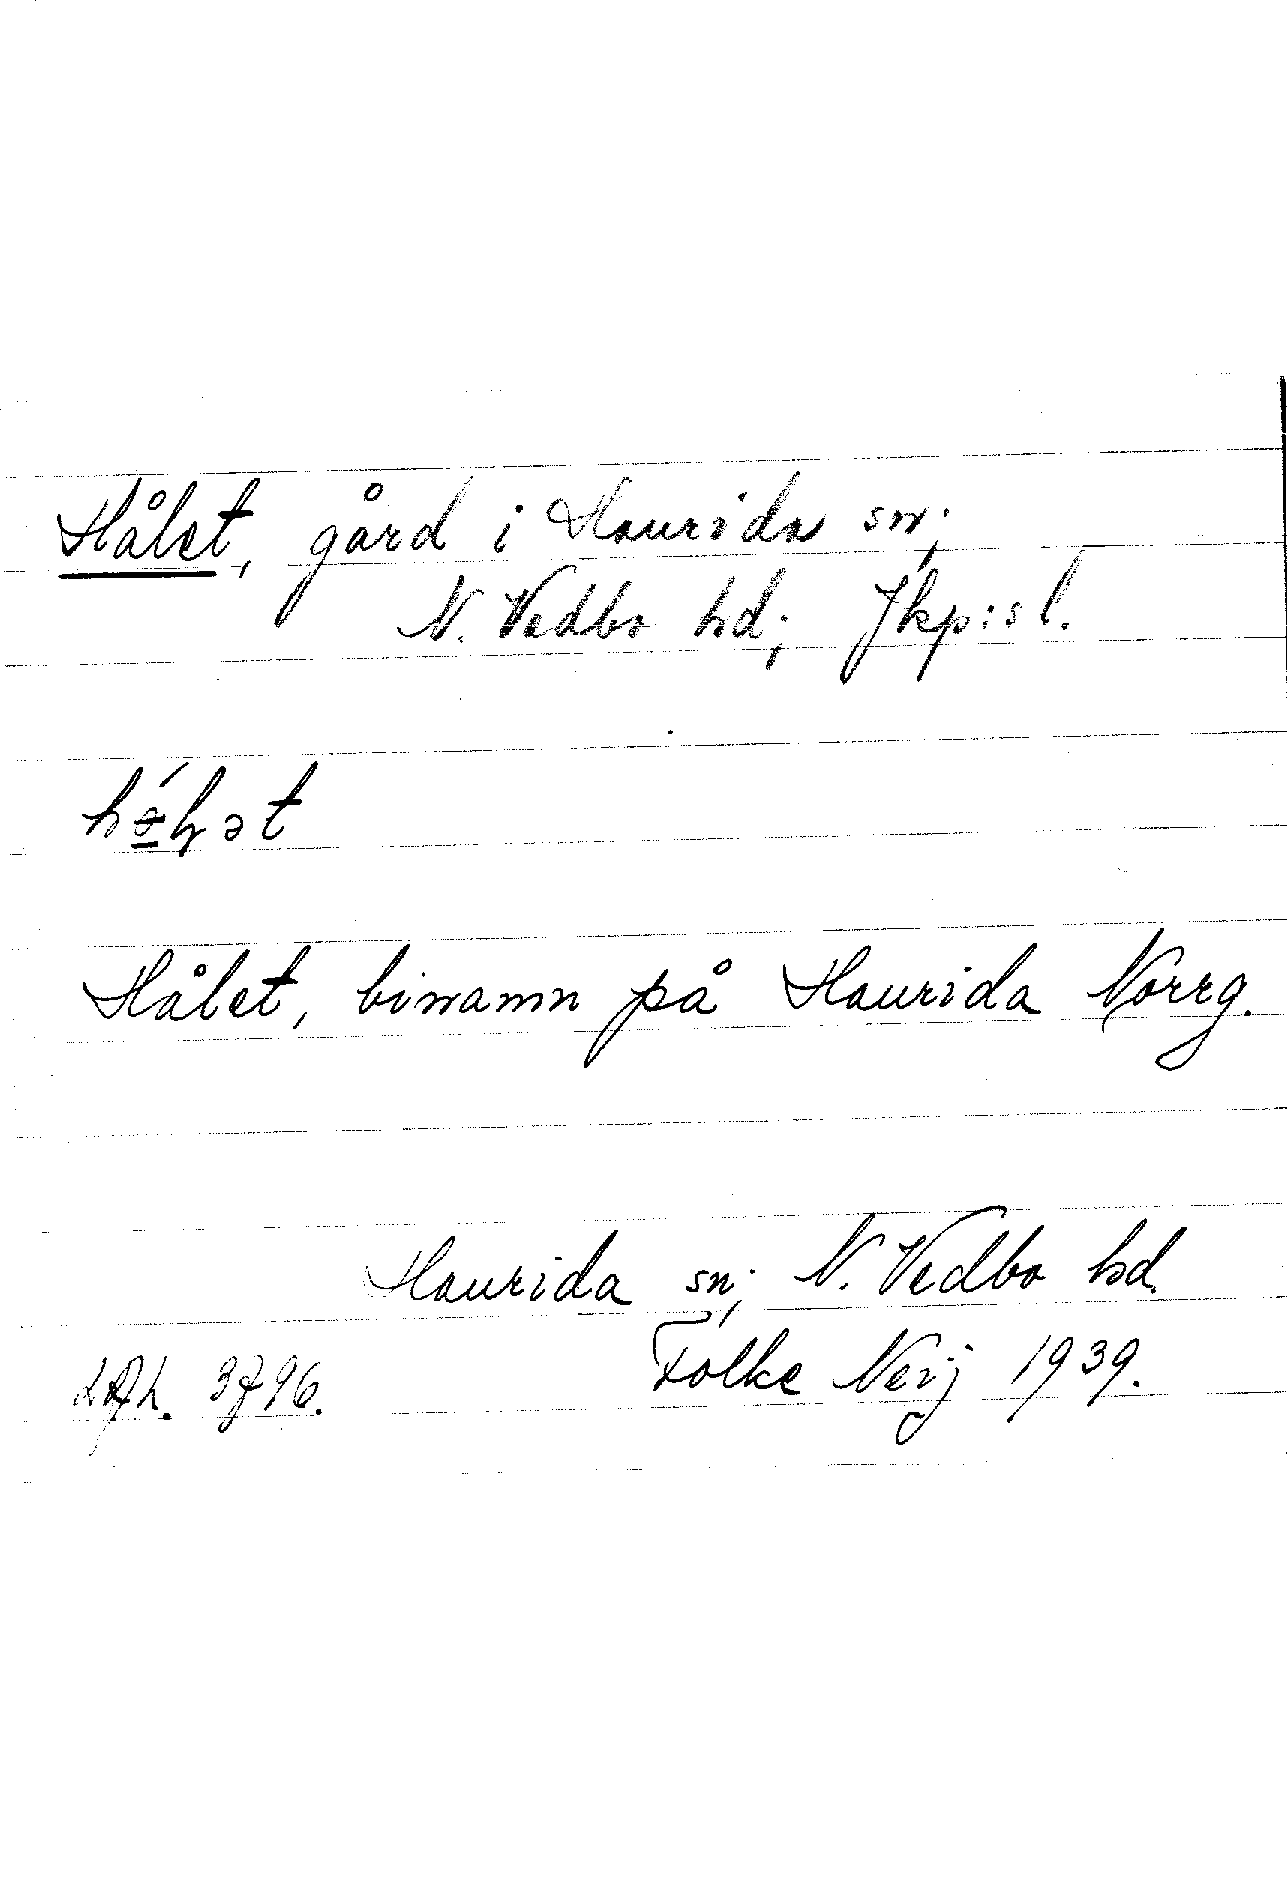 Hålet, gård i Haurida sn;
N. Vedbo hd; Jkp:s l.
Hålet, binamn på Haurida Norrg.
Haurida sn; N. Vedbo hd.
Folke Neij 1939.
3796.